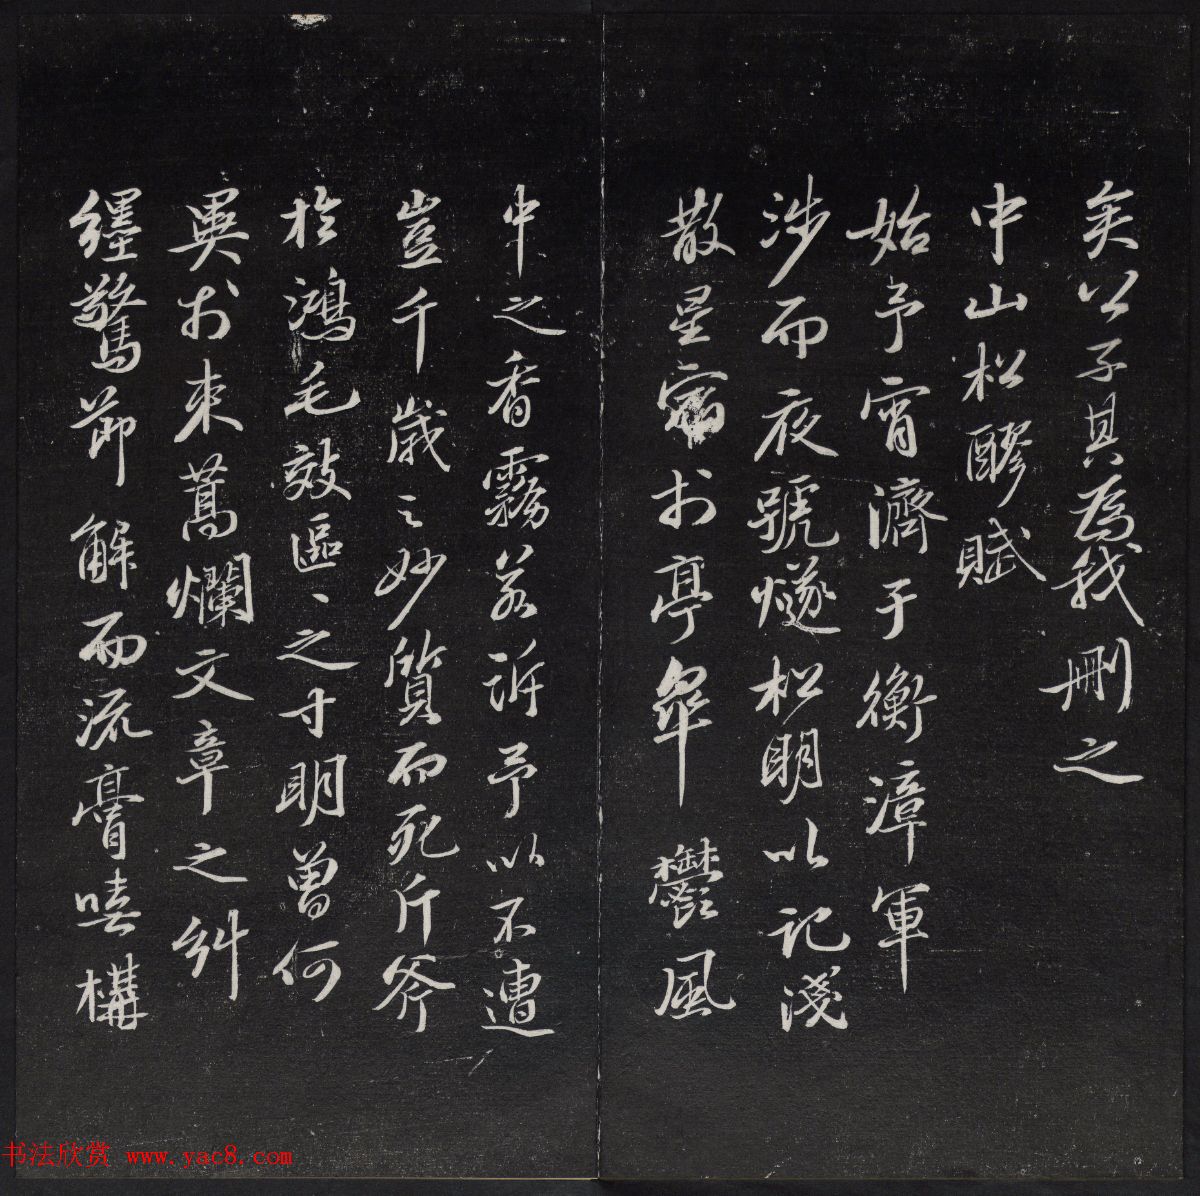 矣公子其為我刪之
中山松醪賦
始予宵濟于衡漳軍
涉而夜號燧松明以記淺
散星宿於亭皋鬱風
中之香霧若訴予以不遭
豈千歲之妙質而死斤斧
於鴻毛效區〻之寸明曾何
異於束蒿爛文章之糾
纆驚節解而流膏嘻構
书法欣赏 www.yac8.com